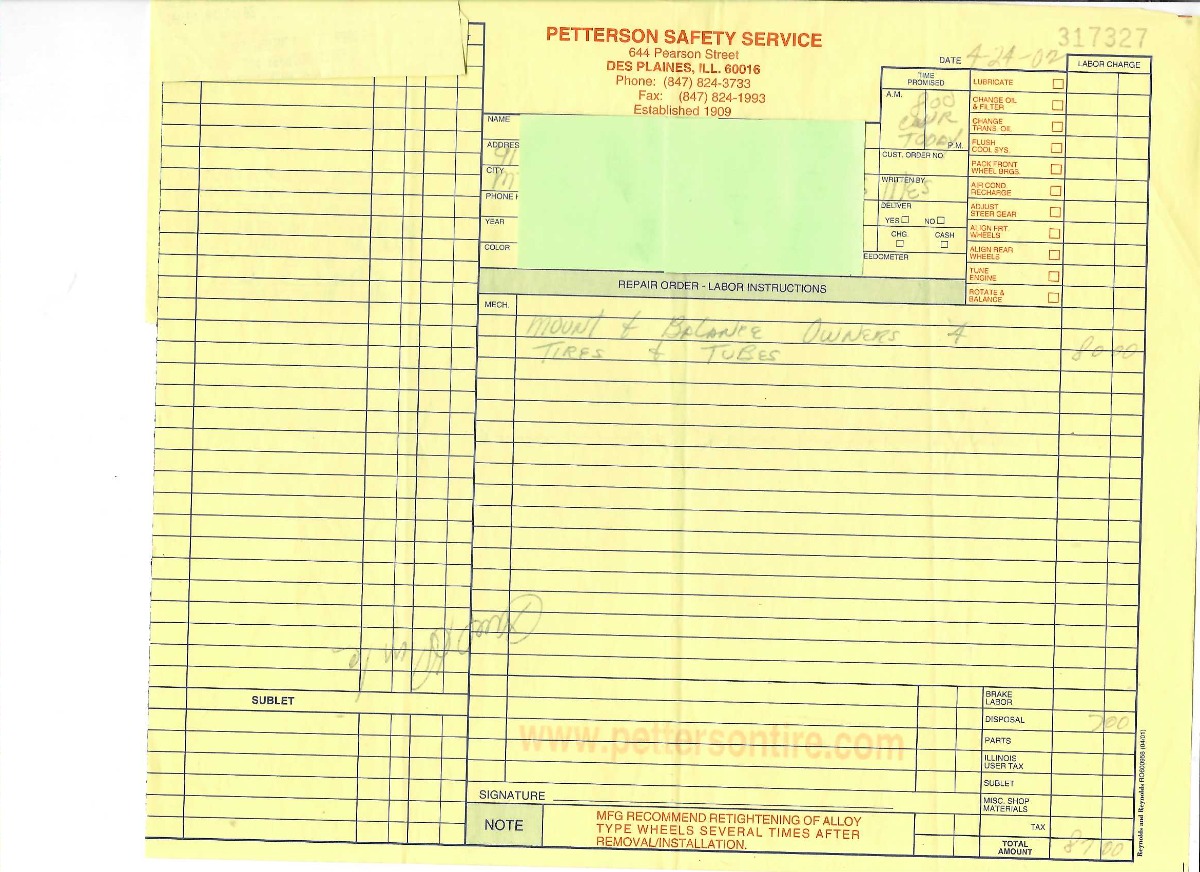 PETTERSON SAFETY SERVICE
644 Pearson Street
DES PLAINES, ILL. 60016
Phone: (847) 824-3733
Fax: (847) 824-1993
Established 1909
317327
DATE 4-24-02
LABOR CHARGE
TIME PROMISED
A.M. 800
TODAY P.M.
CUST. ORDER NO.
WRITTEN BY
DELIVER
YES NO
CHG. CASH
EEDOMETER
LUBRICATE
CHANGE OIL & FILTER
CHANGE TRANS. OIL
FLUSH COOL SYS.
PACK FRONT WHEEL BRGS.
AIR COND. RECHARGE
ADJUST STEER GEAR
ALIGN FRT. WHEELS
ALIGN REAR WHEELS
TUNE ENGINE
ROTATE & BALANCE
NAME
ADDRES
91
CITY
PHONE
YEAR
COLOR
REPAIR ORDER - LABOR INSTRUCTIONS
MECH.
MOUNT & BALANCE OWNERS 4
TIRES & TUBES 80 00
SUBLET
www.pettersontire.com
BRAKE LABOR
DISPOSAL 7 00
PARTS
ILLINOIS USER TAX
SUBLET
MISC. SHOP MATERIALS
TAX
TOTAL AMOUNT 87 00
SIGNATURE
NOTE
MFG RECOMMEND RETIGHTENING OF ALLOY
TYPE WHEELS SEVERAL TIMES AFTER
REMOVAL/INSTALLATION.
Reynolds and Reynolds RO603956 (04/01)